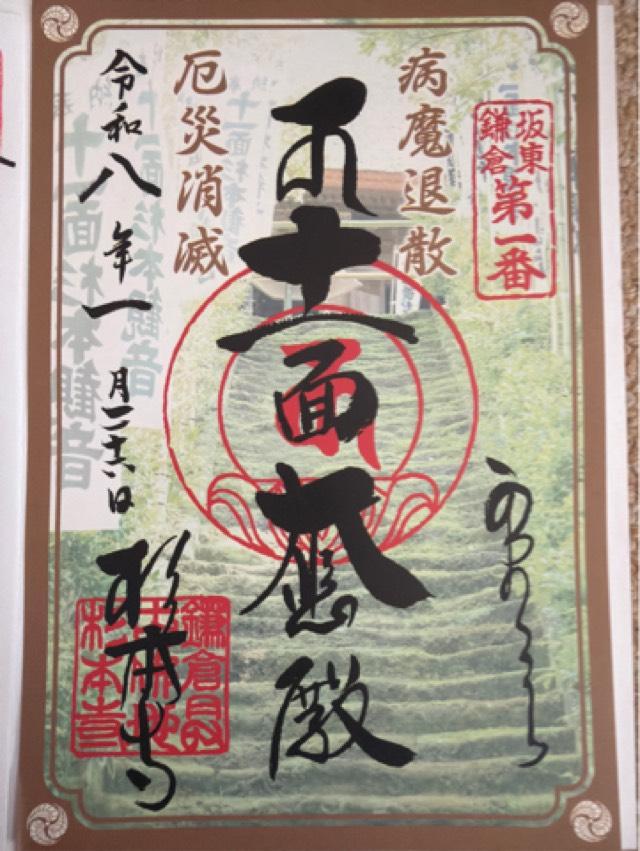 坂東
鎌倉
第一番
病魔退散
十一面大悲殿
厄災消滅
令和八年一月二十六日
杉本寺
十一面杉本観音
十一面杉本観音